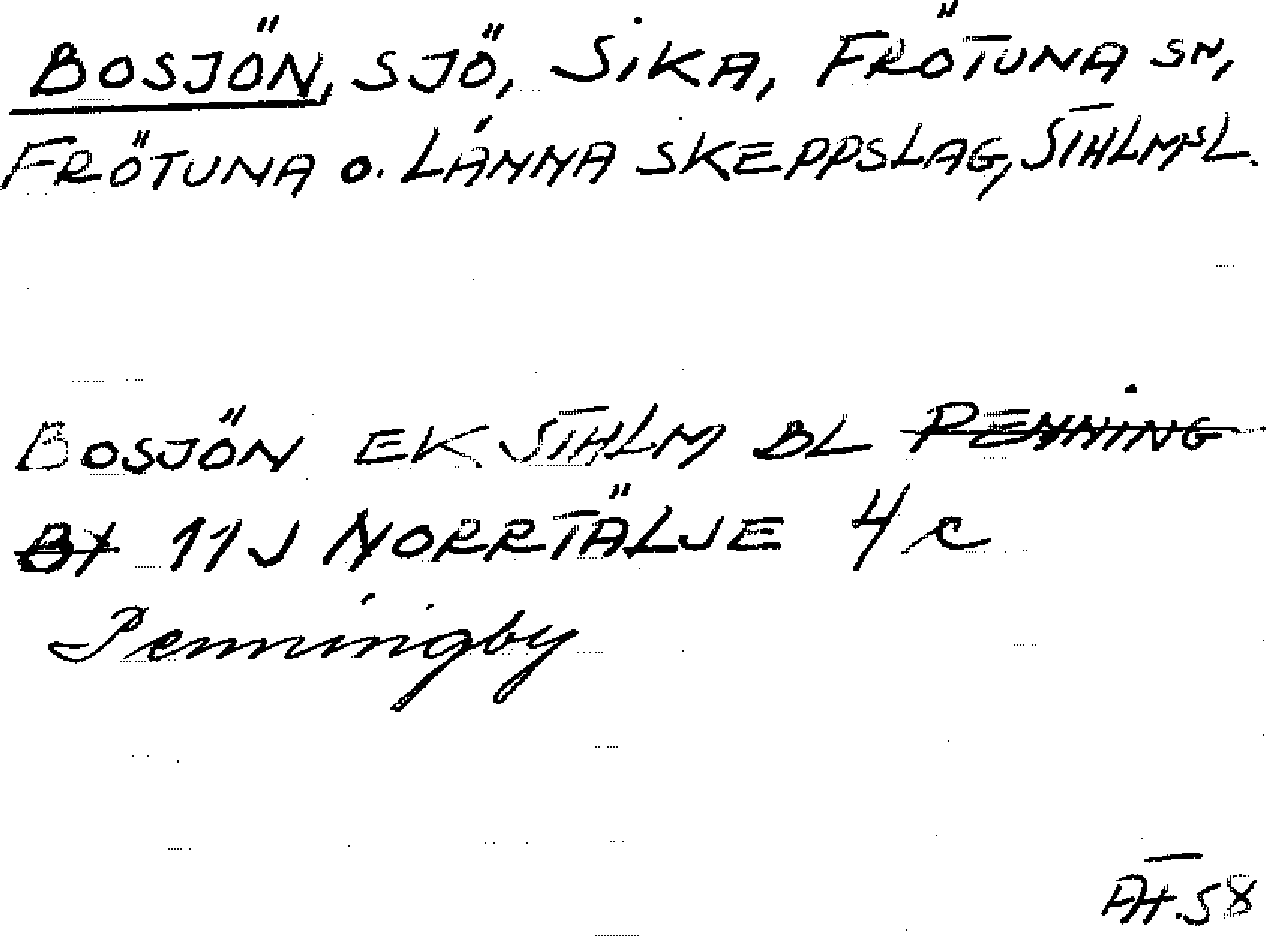 BOSJÖN, SJÖ, SIKA, FRÖTUNA SN,
FRÖTUNA O. LÄNNA SKEPPSLAG, STHLMSL.
BOSJÖN EK STHLM BL PENNING
BY 11J NORRTÄLJE 4c
Penningby
AH.58